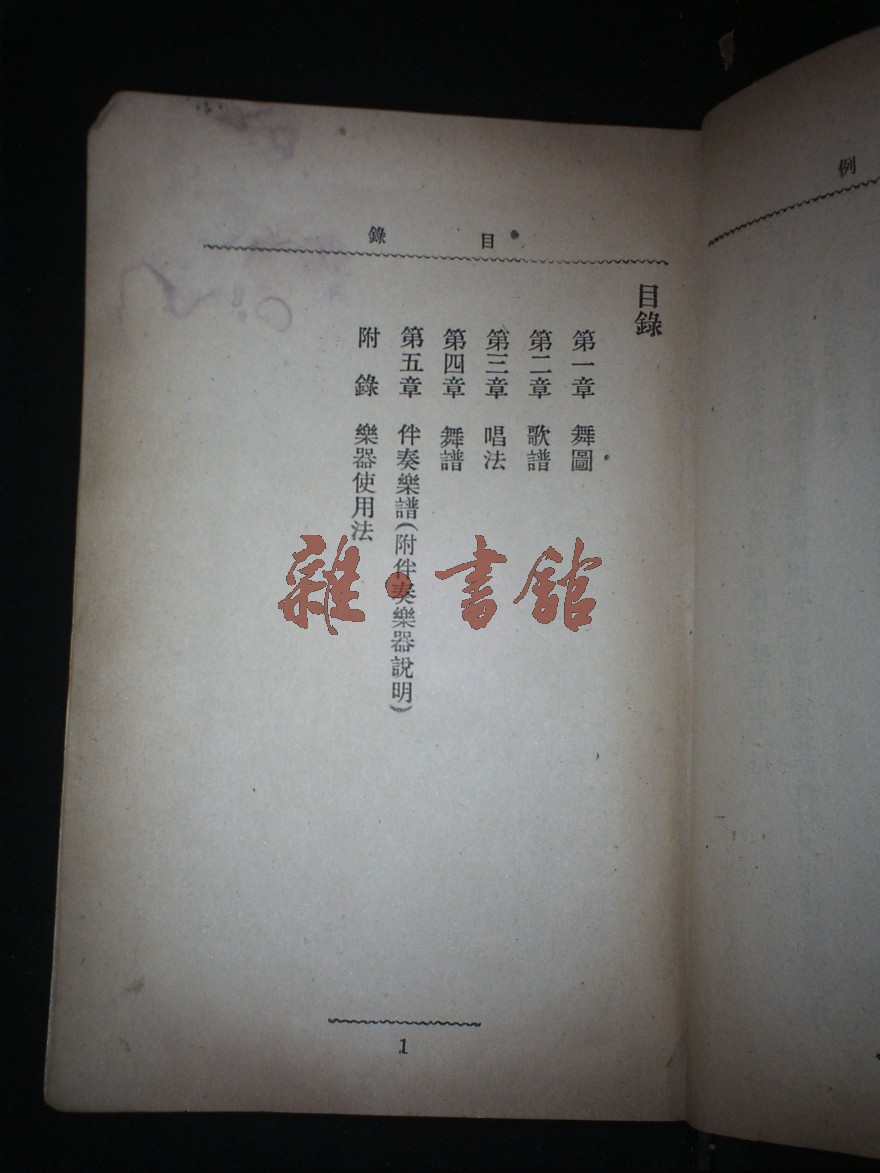 目錄
目錄
第一章 舞圖
第二章 歌譜
第三章 唱法
第四章 舞譜
第五章 伴奏樂譜(附伴奏樂器說明)
附錄 樂器使用法
1
例
雜·書館